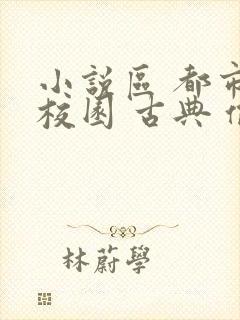 小說區 都市
校園 古典
林蔚學